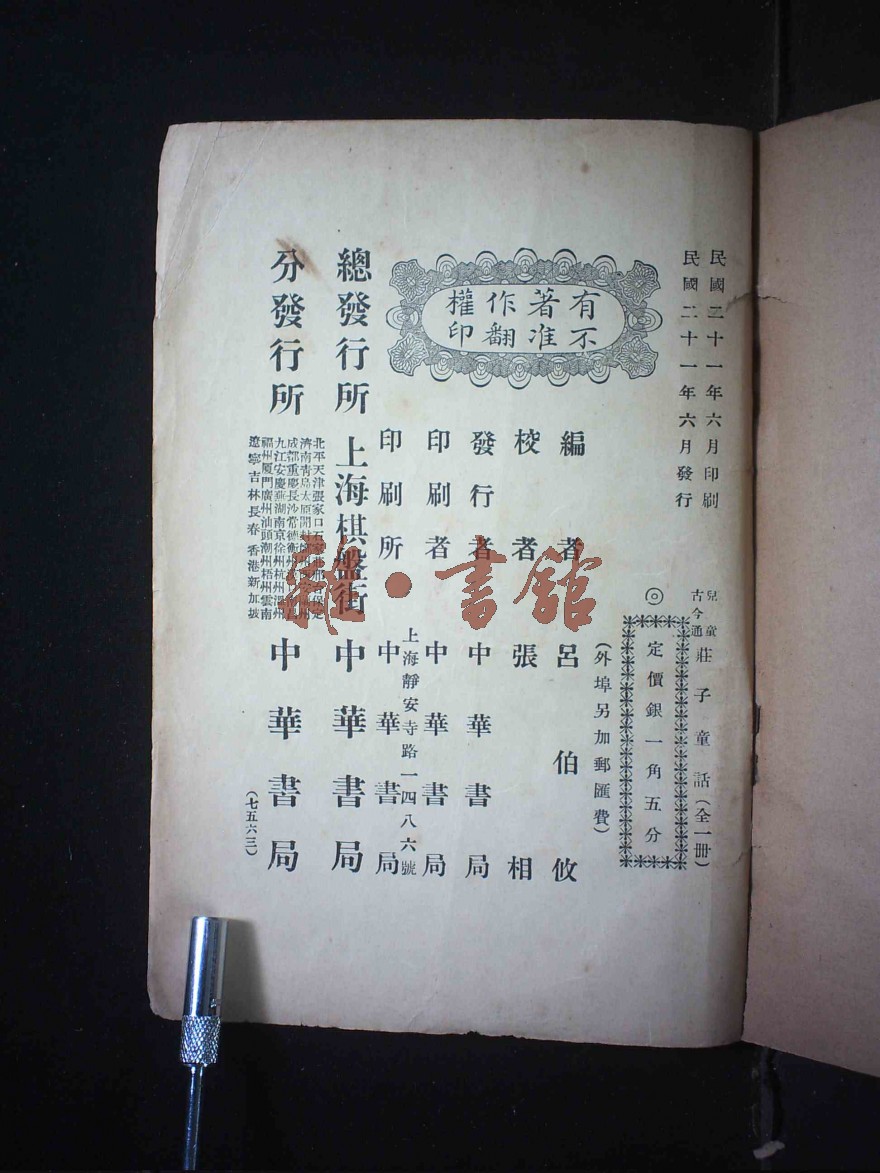 民國二十一年六月印刷
民國二十一年六月發行
兒童
古今通
莊子童話(全一册)
◎定價銀一角五分
(外埠另加郵匯費)
有著作權
不准翻印
編者 呂伯攸
校者 張相
發行者 中華書局
印刷者 中華書局
上海靜安寺路一四八六號
印刷所 中華書局
總發行所 上海棋盤街 中華書局
分發行所
北平天津張家口石家莊邢台保定
濟南青島太原開封
成都重慶長沙常德衡州
九江安慶蕪湖南京徐州杭州溫州
福州廈門廣州汕頭潮州梧州雲南
遼寧吉林長春香港新加坡
中華書局
(七五六三)
雜·書館